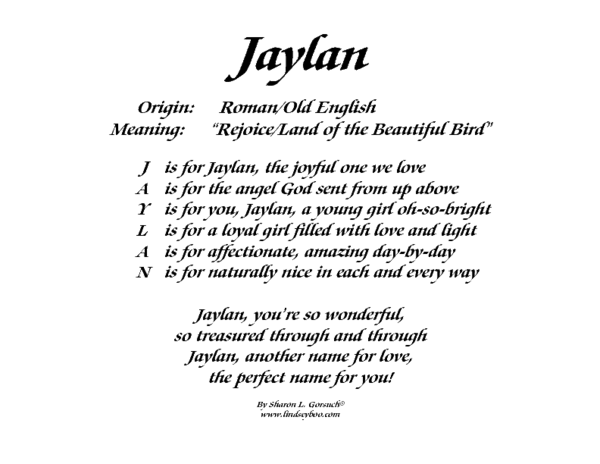 Jaylan
Origin: Roman/Old English
Meaning: "Rejoice/Land of the Beautiful Bird"
J is for Jaylan, the joyful one we love
A is for the angel God sent from up above
Y is for you, Jaylan, a young girl oh-so-bright
L is for a loyal girl filled with love and light
A is for affectionate, amazing day-by-day
N is for naturally nice in each and every way
Jaylan, you're so wonderful,
so treasured through and through
Jaylan, another name for love,
the perfect name for you!
By Sharon L. Gorsuch©
www.lindseyboo.com